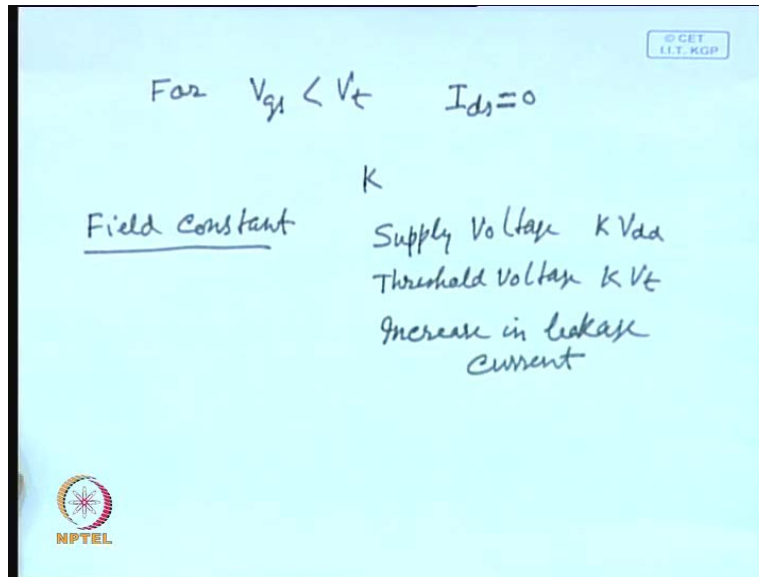 © CET
I.I.T. KGP
For Vgs < Vt Ids = 0
K
Field Constant
Supply Voltage K Vdd
Threshold Voltage K Vt
Increase in leakage
current
NPTEL